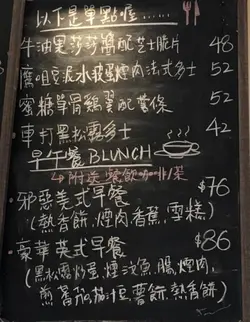 以下是單點喔......
牛油果莎莎醬配芝士脆片 48
鷹咀豆泥水波蛋煙肉法式多士 52
蜜糖單骨鷄翼配薯條 52
車打黑松露多士 42
早午餐 BLUNCH
↳ 附送 餐飲咖啡/茶
邪惡美式早餐 $76
(熱香餅,煙肉香蕉,雪糕)
豪華英式早餐 $86
(黑松露炒蛋,煙三文魚,腸,煙肉,
煎蕃茄,茄汁豆,薯餅,熱香餅)